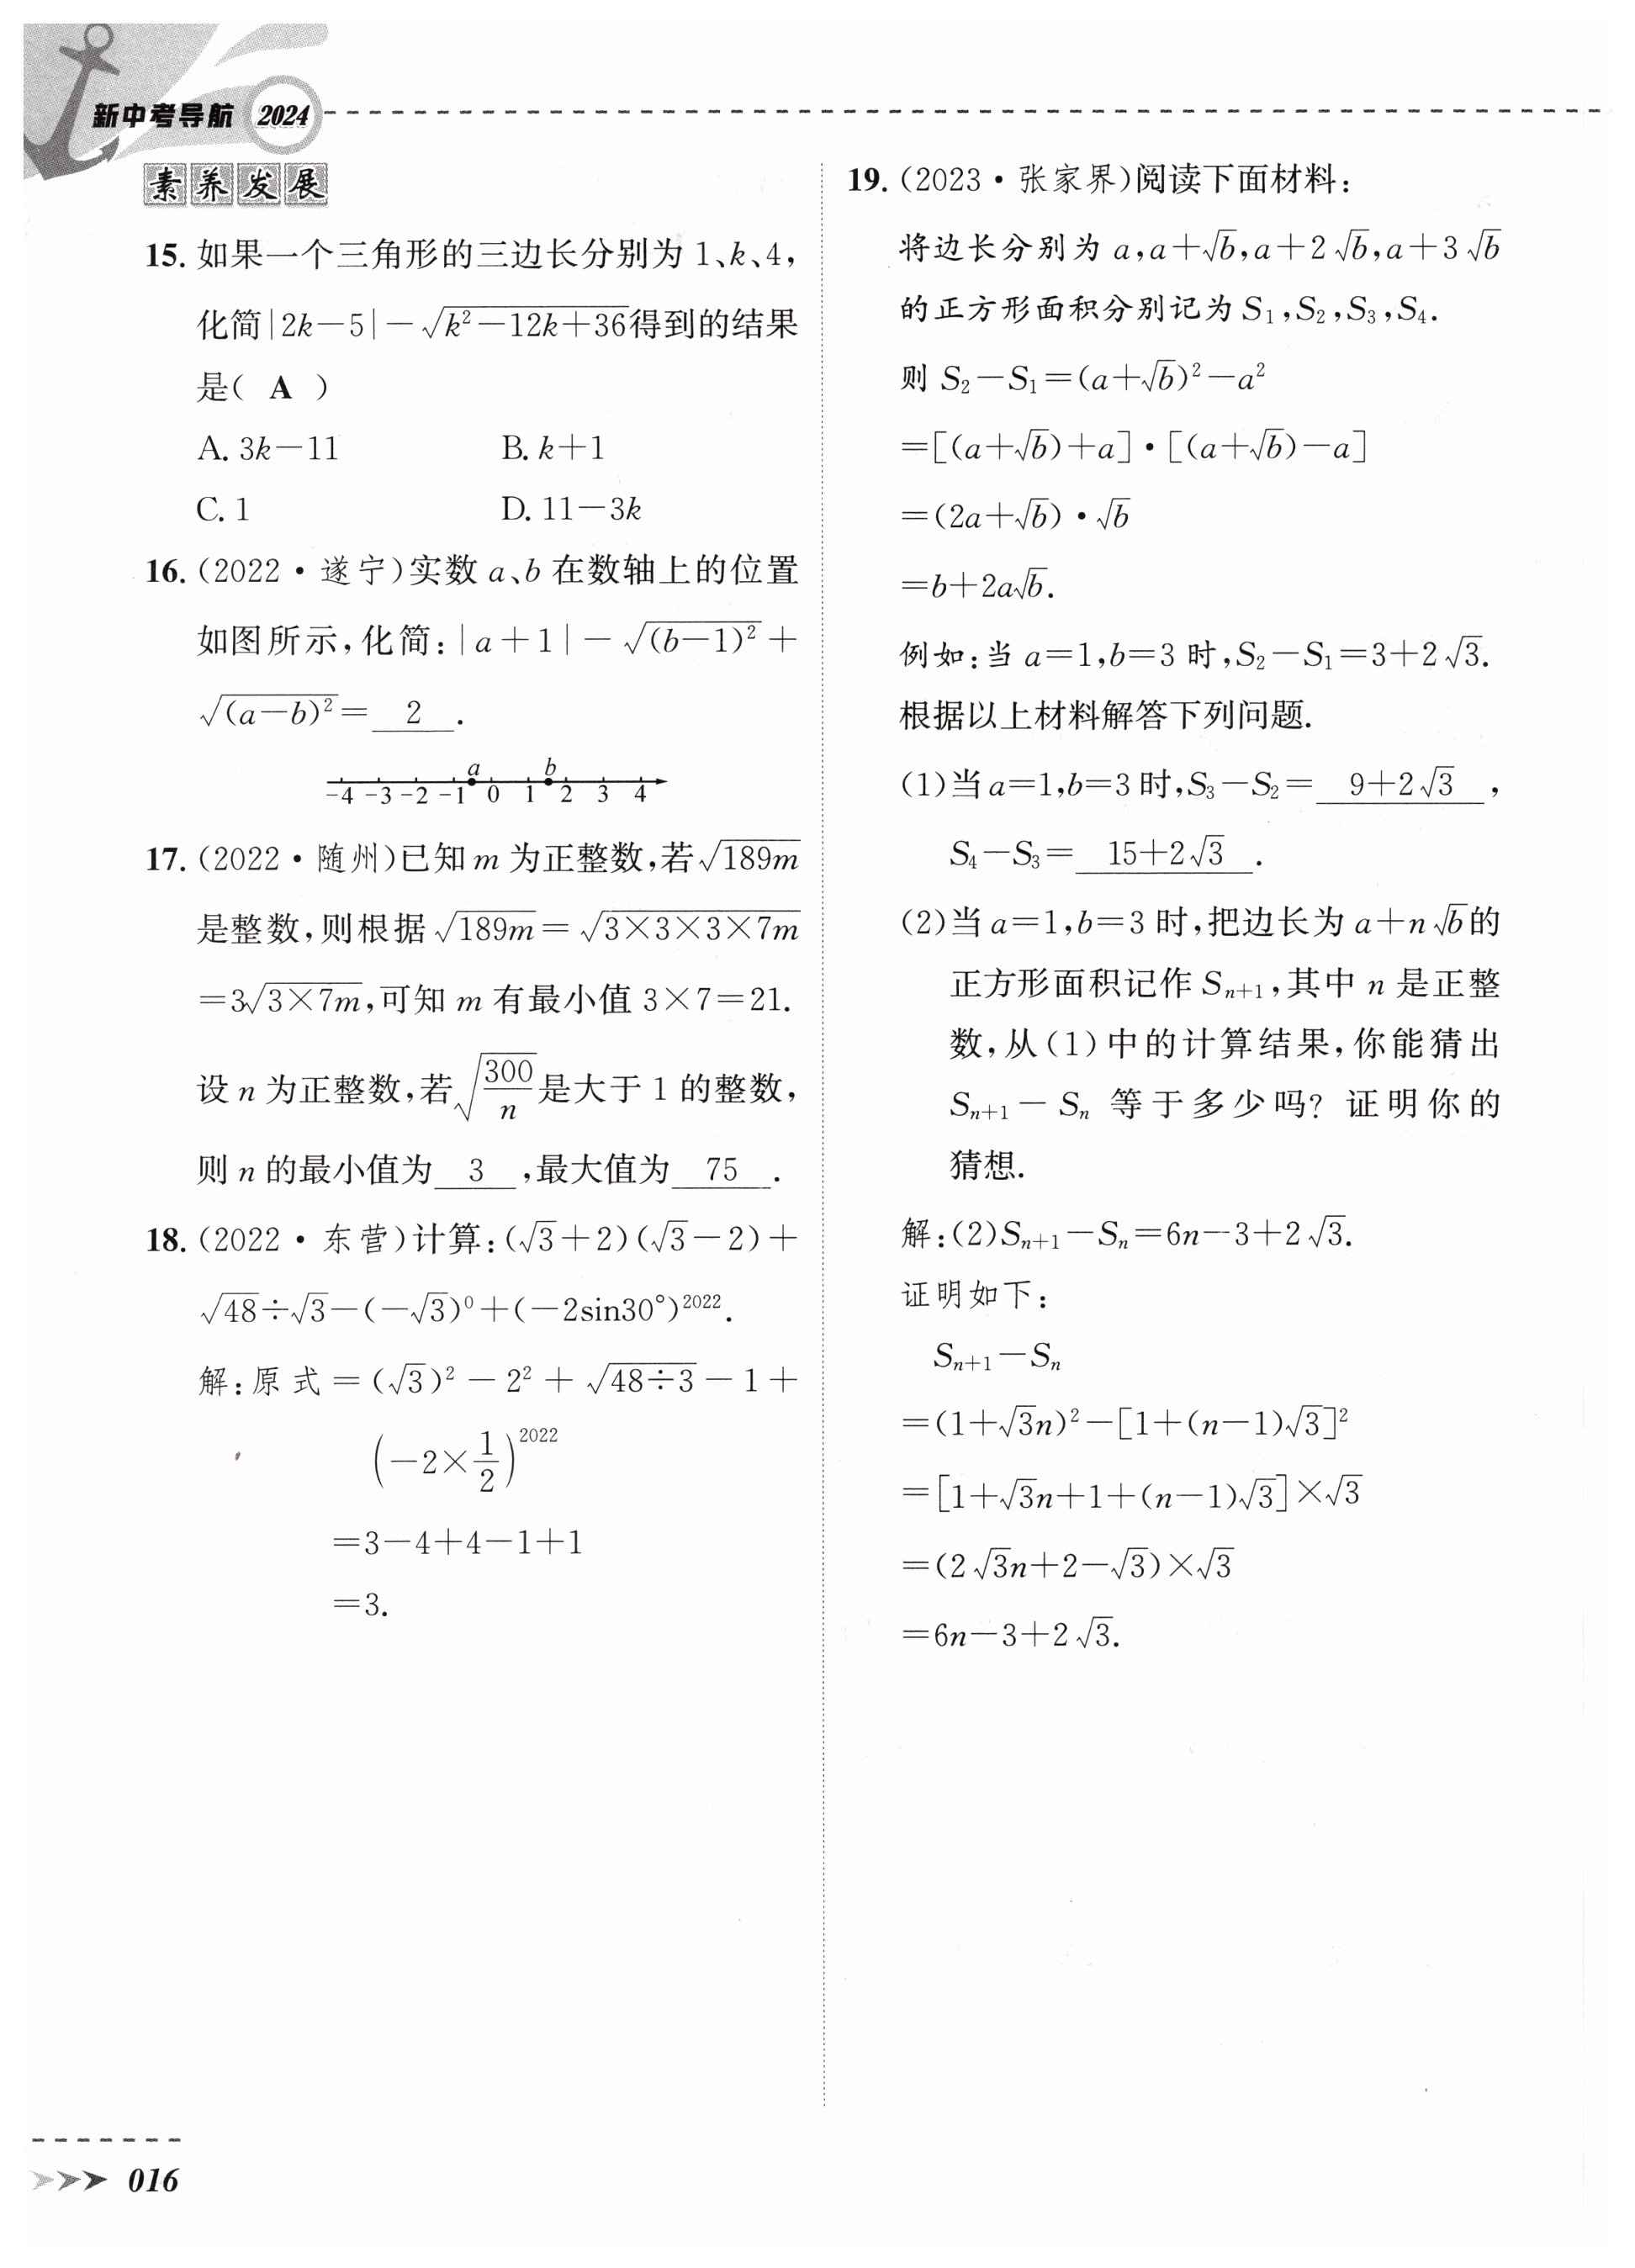 新中考导航 2024
素养发展
15. 如果一个三角形的三边长分别为 1、k、4,
化简|2k－5|－√(k²－12k＋36)得到的结果
是( A )
A. 3k－11 B. k＋1
C. 1 D. 11－3k
16. (2022·遂宁)实数 a、b 在数轴上的位置
如图所示,化简:|a＋1|－√((b－1)²)＋
√((a－b)²)＝ 2 .
a b
-4 -3 -2 -1 0 1 2 3 4
17. (2022·随州)已知 m 为正整数,若√(189m)
是整数,则根据√(189m)＝√(3×3×3×7m)
＝3√(3×7m),可知 m 有最小值 3×7＝21.
设 n 为正整数,若√(300/n)是大于 1 的整数,
则 n 的最小值为 3 ,最大值为 75 .
18. (2022·东营)计算:(√3＋2)(√3－2)＋
√48÷√3－(－√3)⁰＋(－2sin30°)²⁰²².
解:原式＝(√3)²－2²＋√(48÷3)－1＋
(－2×1/2)²⁰²²
＝3－4＋4－1＋1
＝3.
19. (2023·张家界)阅读下面材料:
将边长分别为 a,a＋√b,a＋2√b,a＋3√b
的正方形面积分别记为 S₁,S₂,S₃,S₄.
则 S₂－S₁＝(a＋√b)²－a²
＝[(a＋√b)＋a]·[(a＋√b)－a]
＝(2a＋√b)·√b
＝b＋2a√b.
例如:当 a＝1,b＝3 时,S₂－S₁＝3＋2√3.
根据以上材料解答下列问题.
(1)当 a＝1,b＝3 时,S₃－S₂＝ 9＋2√3 ,
S₄－S₃＝ 15＋2√3 .
(2)当 a＝1,b＝3 时,把边长为 a＋n√b的
正方形面积记作 Sₙ₊₁,其中 n 是正整
数,从(1)中的计算结果,你能猜出
Sₙ₊₁－Sₙ 等于多少吗? 证明你的
猜想.
解:(2)Sₙ₊₁－Sₙ＝6n－3＋2√3.
证明如下:
Sₙ₊₁－Sₙ
＝(1＋√3n)²－[1＋(n－1)√3]²
＝[1＋√3n＋1＋(n－1)√3]×√3
＝(2√3n＋2－√3)×√3
＝6n－3＋2√3.
016